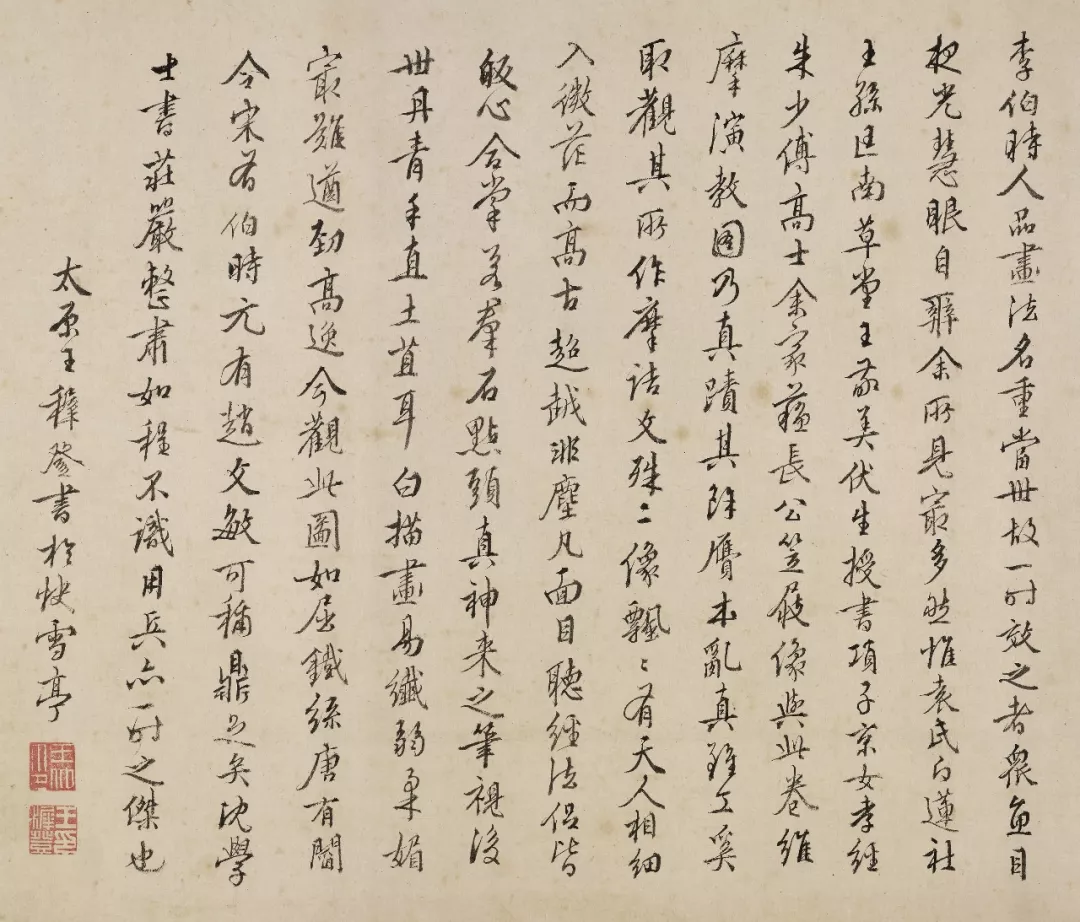 李伯時人品畫法名重當世故一時效之者眾魚目
夜光慧眼自辨余所見最多然惟袁氏白蓮社
王孫匡南草堂王敬美伏生授書項子京女孝經
朱少傅高士余家蘇長公笠屐像與此卷維
摩演教圖乃真蹟其餘贋本亂真雖工奚
取觀其所作摩詰文殊二像飄飄有天人相細
入微茫而高古超越非塵凡面目聽經法侶皆
皈心合掌若羣石點頭真神來之筆視後
世丹青手直土苴耳白描畫易纖弱柔媚
最難遒勁高逸今觀此圖如屈鐵絲唐有閻
令宋有伯時元有趙文敏可稱鼎足矣沈學
士書莊嚴整肅如程不識用兵亦一時之傑也
太原王穉登書於快雪亭